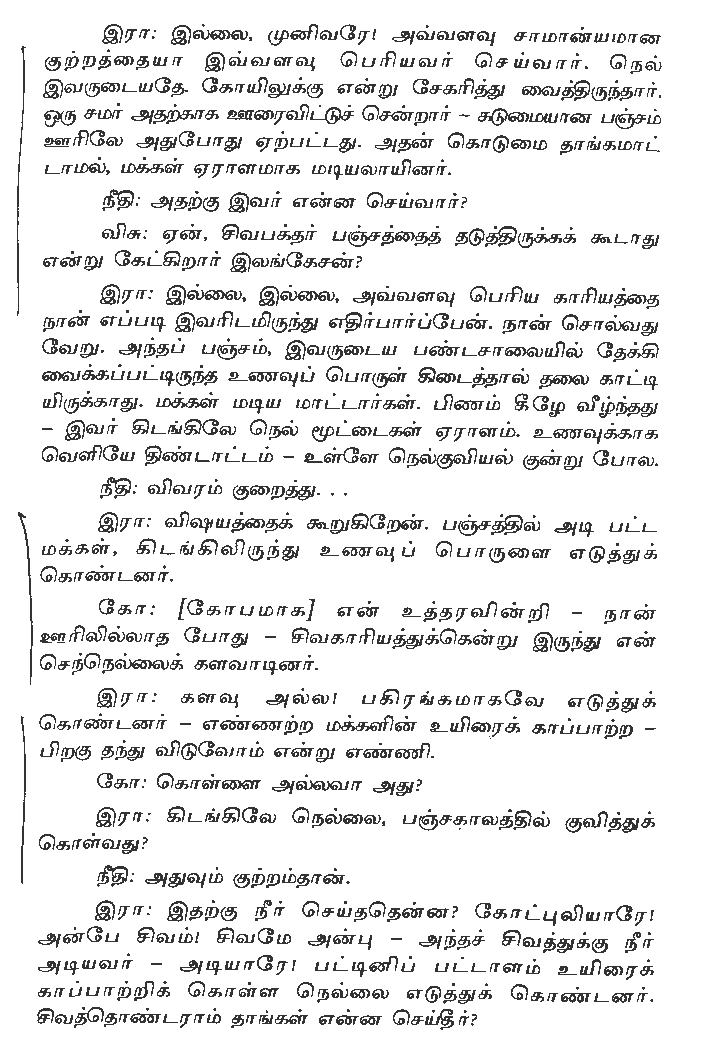 இரா: இல்லை, முனிவரே! அவ்வளவு சாமான்யமான
குற்றத்தையா இவ்வளவு பெரியவர் செய்வார். நெல்
இவருடையதே. கோயிலுக்கு என்று சேகரித்து வைத்திருந்தார்.
ஒரு சமர் அதற்காக ஊரைவிட்டுச் சென்றார் – கடுமையான பஞ்சம்
ஊரிலே அதுபோது ஏற்பட்டது. அதன் கொடுமை தாங்கமாட்
டாமல், மக்கள் ஏராளமாக மடியலாயினர்.
நீதி: அதற்கு இவர் என்ன செய்வார்?
விசு: ஏன், சிவபக்தர் பஞ்சத்தைத் தடுத்திருக்கக் கூடாது
என்று கேட்கிறார் இலங்கேசன்?
இரா: இல்லை, இல்லை, அவ்வளவு பெரிய காரியத்தை
நான் எப்படி இவரிடமிருந்து எதிர்பார்ப்பேன். நான் சொல்வது
வேறு. அந்தப் பஞ்சம், இவருடைய பண்டசாலையில் தேக்கி
வைக்கப்பட்டிருந்த உணவுப் பொருள் கிடைத்தால் தலை காட்டி
யிருக்காது. மக்கள் மடிய மாட்டார்கள். பிணம் கீழே வீழ்ந்தது
– இவர் கிடங்கிலே நெல் மூட்டைகள் ஏராளம். உணவுக்காக
வெளியே திண்டாட்டம் – உள்ளே நெல்குவியல் குன்று போல.
நீதி: விவரம் குறைத்து. . .
இரா: விஷயத்தைக் கூறுகிறேன். பஞ்சத்தில் அடி பட்ட
மக்கள், கிடங்கிலிருந்து உணவுப் பொருளை எடுத்துக்
கொண்டனர்.
கோ: [கோபமாக] என் உத்தரவின்றி – நான்
ஊரிலில்லாத போது – சிவகாரியத்துக்கென்று இருந்து என்
செந்நெல்லைக் களவாடினர்.
இரா: களவு அல்ல! பகிரங்கமாகவே எடுத்துக்
கொண்டனர் – எண்ணற்ற மக்களின் உயிரைக் காப்பாற்ற –
பிறகு தந்து விடுவோம் என்று எண்ணி.
கோ: கொள்ளை அல்லவா அது?
இரா: கிடங்கிலே நெல்லை, பஞ்சகாலத்தில் குவித்துக்
கொள்வது?
நீதி: அதுவும் குற்றம்தான்.
இரா: இதற்கு நீர் செய்ததென்ன? கோட்புலியாரே!
அன்பே சிவம்! சிவமே அன்பு – அந்தச் சிவத்துக்கு நீர்
அடியவர் – அடியாரே! பட்டினிப் பட்டாளம் உயிரைக்
காப்பாற்றிக் கொள்ள நெல்லை எடுத்துக் கொண்டனர்.
சிவத்தொண்டராம் தாங்கள் என்ன செய்தீர்?